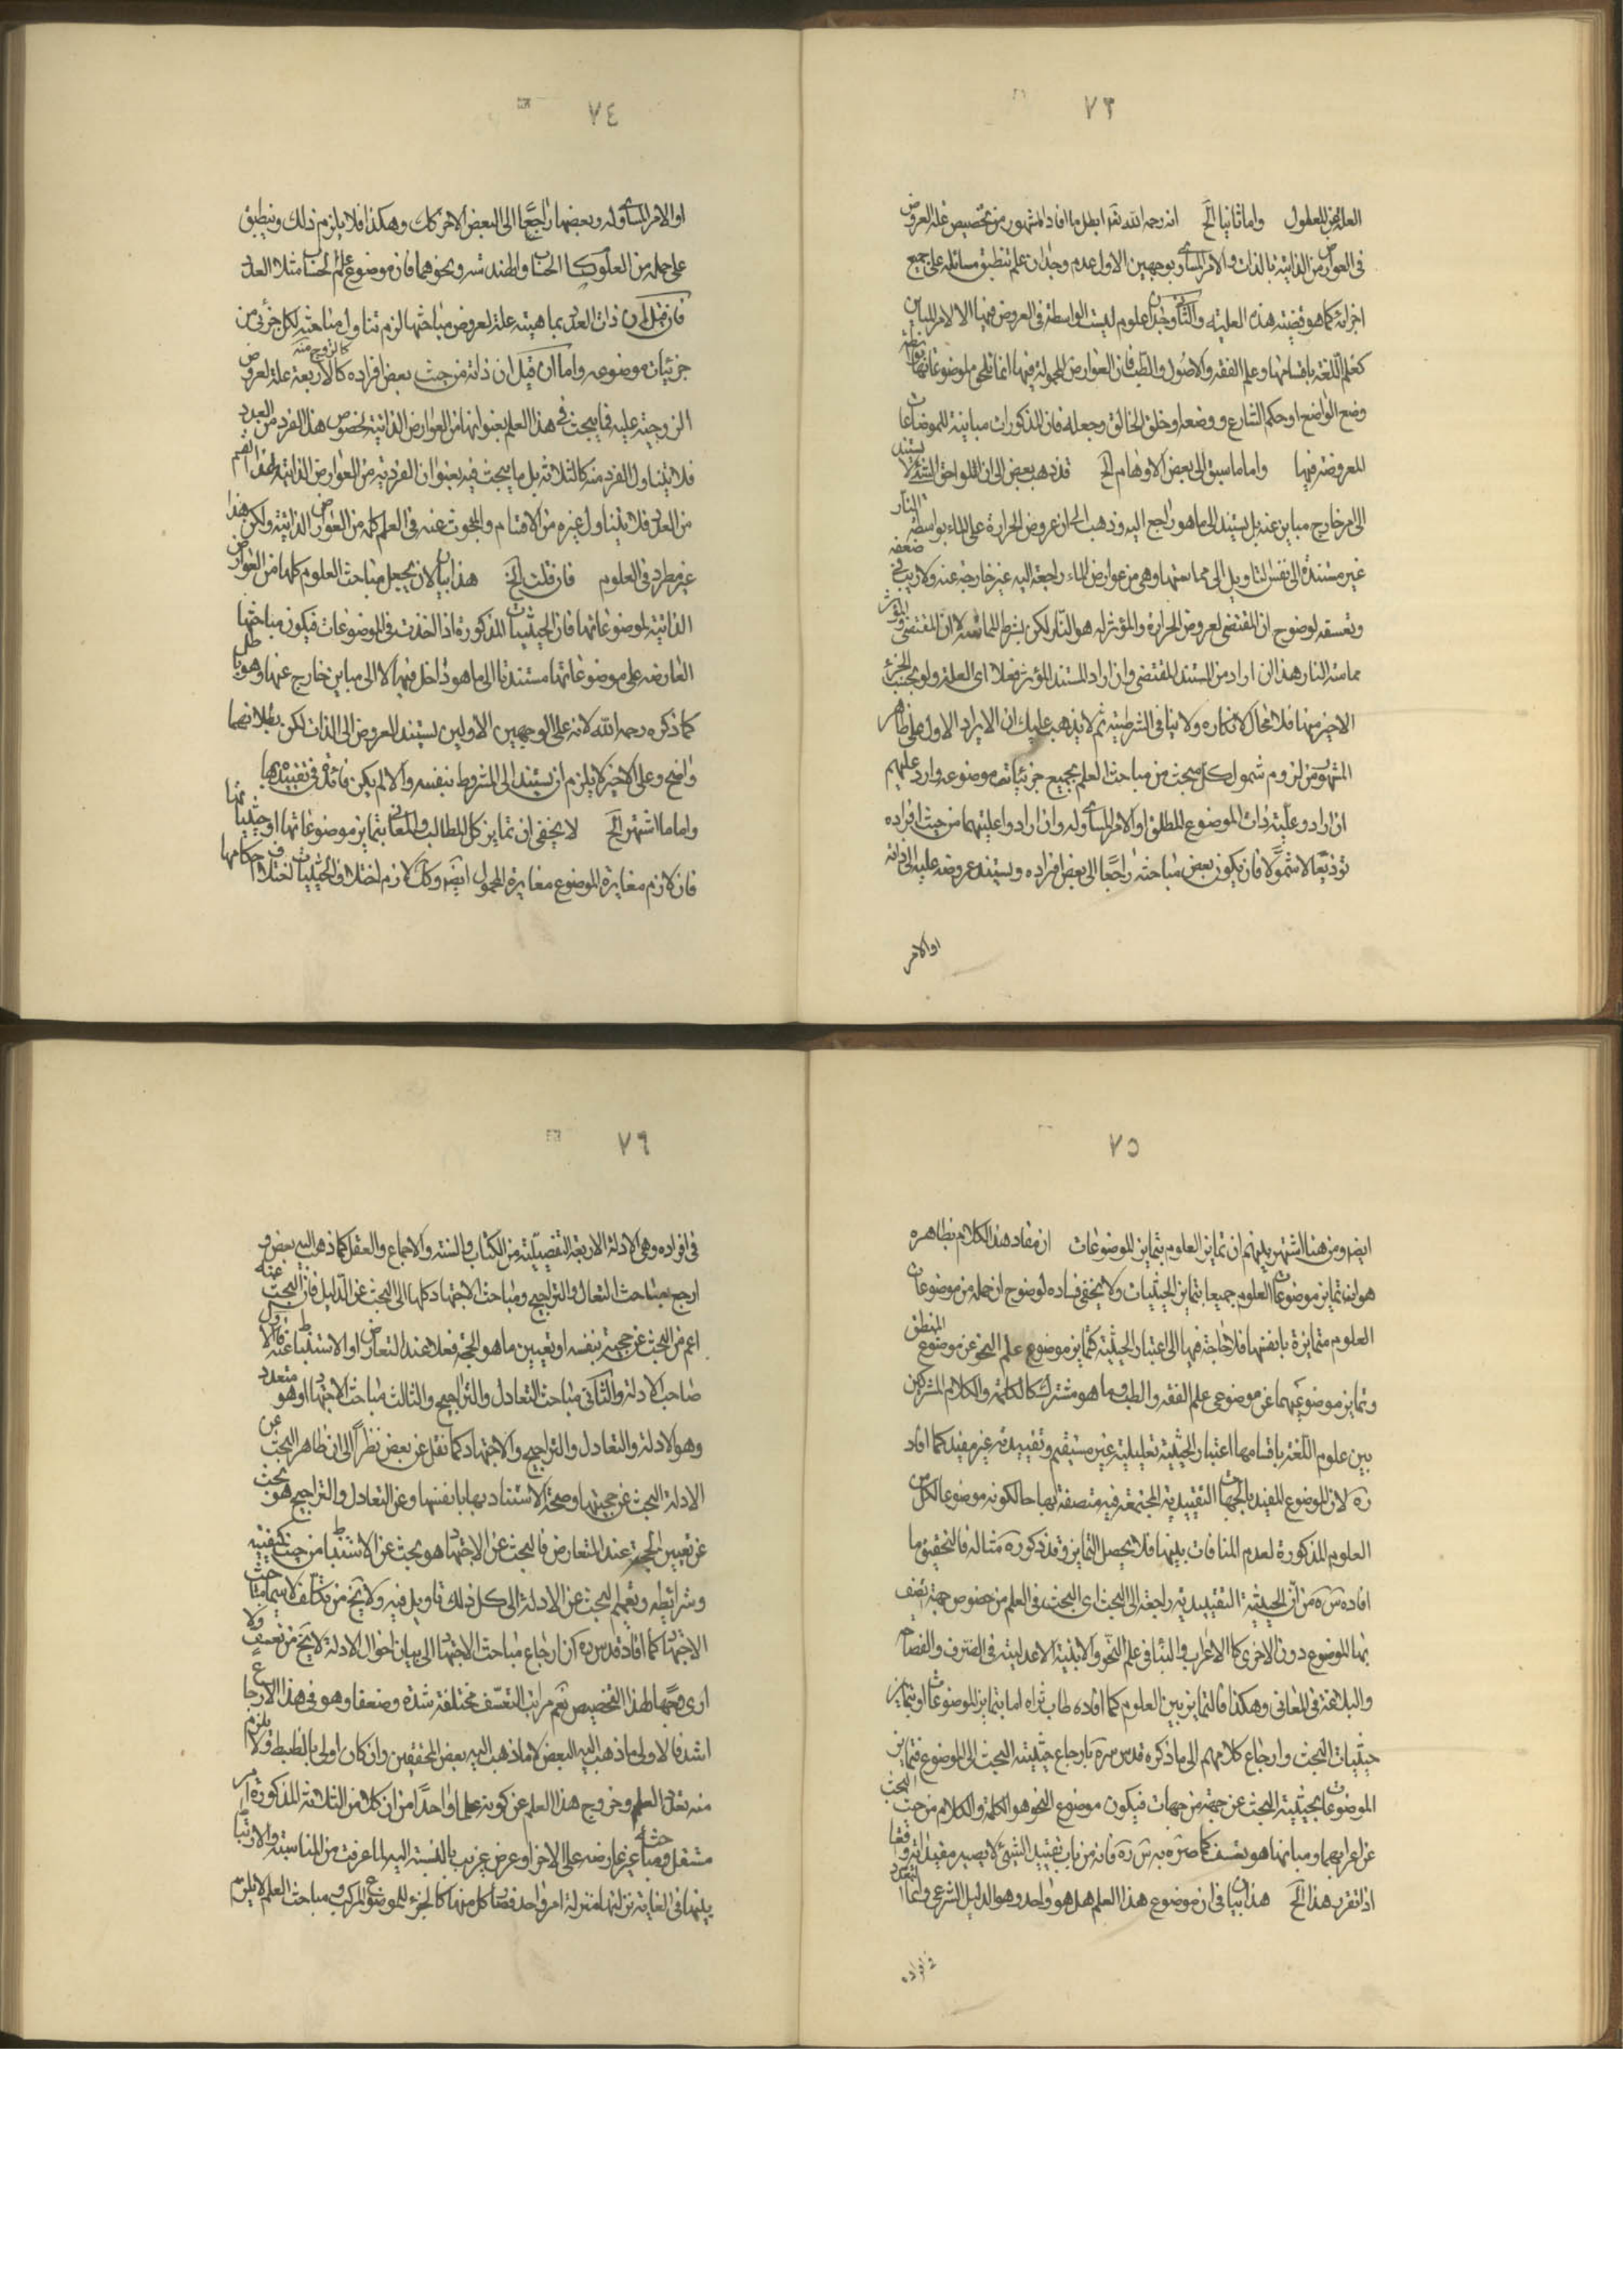 ٧٣
العلة عن المعلول واما ثانيا الخ انه رحمه الله تقد ابطل ما افاد المشهور من تخصيص علة العروض
في العوارض الذاتية بالذات والامر المساوي بوجهين الاول عدم وجدان علم تنطبق مسائله على جميع
اجزائه كما هو قضيته هذه العلية والثاني وجدان علوم ليست الواسطة في العروض فيها الا الامر المباين
كعلم اللغة باقسامها وعلم الفقه والاصول والطب فان العوارض المحمولة فيها انما تلحق موضوعاتها بواسطة
وضع الواضع او حكم الشارع ووضعه او خلق الخالق وجعله فان المذكورات مباينة للموضوعات
المعروضة فيها واما ما سبق الى بعض الاوهام الخ قد ذهب بعض الى ان اللواحق للشئ لا يستند
الى امر خارج مباين عنه بل يستند الى ما هو راجع اليه وذهب الى ان عروض الحرارة على الماء بواسطة النار
غير مستندة الى نفس النار بل الى مماستها وهي من عوارض الماء راجعة اليه غير خارجة عنه ولا ريب في ضعفه
وتعسفه لوضوح ان المقتضي لعروض الحرارة والمؤثر له هو النار لكن بشرط المماسة لا ان المقتضي والمؤثر
مماسة النار هذا ان اراد من المستند المقتضي وان اراد المستند المؤثر فعلا اى العلة ولو بحسب الجزء
الاخير منها فلا مجال لانكاره ولا ينافي الشرطية ثم لا يذهب عليك ان الايراد الاول على ظاهر
المشهور من لزوم شمول كل مبحث من مباحث العلم بجميع جزئيات موضوعه وارد عليهم
ان ارادوا علية ذات الموضوع المطلق او الامر المساوي له وان ارادوا عليتهما من حيث افراده
توزيعا لا شمولا فان يكون بعض مباحثه راجعا الى بعض افراده ويستند عروضه عليه الى ذاته
او الامر
٧٤
او الامر المساوي له وبعضها راجعا الى البعض الاخر كك وهكذا فلا يلزم ذلك وينطبق
على جملة من العلوم كالحساب والهندسة ونحوهما فان موضوع علم الحساب مثلا العدد
فان قيل ان ذات العدد بماهيته علة لعروض مباحثها لزم تناول مباحثه لكل جزئي من
جزئيات موضوعه واما ان قيل ان ذاته من حيث بعض افراده كالاربعة علة لعروض
كالزوج منه
الزوجية عليه فما يبحث في هذا العلم بعنوانها من العوارض الذاتية لخصوص هذا الفرد من العدد
فلا يتناول الفرد منه كالثلاثة بل ما يبحث فيه بعنوان الفردية من العوارض الذاتية لهذا القسم
من العدد فلا يتناول غيره من الاقسام والمبحوث عنه في العلم كله من العوارض الذاتية ولكن هذا
غير مطرد في العلوم فان قلت الخ هذا بيان لان يجعل مباحث العلوم كلها من العوارض
الذاتية لموضوعاتها فان الحيثيات المذكورة اذا اخذت في الموضوعات فيكون مباحثها
العارضة على موضوعاتها مستندة الى ما هو داخل فيها لا الى مباين خارج عنها وهو باطل
كما ذكره رحمه الله لانه على الوجهين الاولين يستند العروض الى الذات لكن بطلانهما
واضح وعلى الاخير لا يلزم ان يستند الى المشروط بنفسه والا لم يكن فائدة في تقييده بها
واما ما اشتهر الخ لا يخفى ان تمايز كل المطالب والمعاني بتمايز موضوعاتها او حيثياتها
فان لازم مغايرة الموضوع مغايرة المحمول ايضا وكك لازم اختلاف الحيثيات اختلاف احكامها
٧٥
ايضا ومن هنا اشتهر بينهم ان تمايز العلوم بتمايز الموضوعات ان مفاد هذا الكلام بظاهره
هو ان تمايز موضوعات العلوم جميعا بتمايز الحيثيات ولا يخفى فساده لوضوح ان جملة من موضوعات
العلوم متمايزة بانفسها فلا حاجة فيها الى اعتبار الحيثية كتمايز موضوع علم النحو عن موضوع المنطق
وتمايز موضوعيهما عن موضوعي علم الفقه والطب وما هو مشترك كالكلمة والكلام المشتركين
بين علوم اللغة باقسامها اعتبار الحيثية تعليلية غير مستقيم وتقييدية غير مفيد كما افاد
ره لان الموضوع المقيد بالجهات التقييدية المجتمعة فيه متصفة بها حالكونه موضوعا لكل من
العلوم المذكورة لعدم المنافات بينها فلا يحصل التمايز وقد ذكر ره مثاله فالتحقيق ما
افاده س ره من ان الحيثية التقييدية راجعة الى البحث اى البحث في العلم من خصوص جهة يتصف
بها الموضوع دون الاخرى كالاعراب والبناء في علم النحو والابنية الاعدلية في الصرف والفصاحة
والبلاغة في المعاني وهكذا فالتمايز بين العلوم كما افاده طاب ثراه اما بتمايز الموضوعات او بتمايز
حيثيات البحث وارجاع كلامهم الى ما ذكره قدس سره بارجاع حيثيته البحث الى الموضوع فتمايز
الموضوعات بحيثية البحث عن جهة من جهات فيكون موضوع النحو هو الكلمة والكلام من حيث البحث
عن اعرابهما وبنائهما هو تعسف كما صرح به س ره فانه من باب تقييد الشئ لا يصير مقيدا له واقعا
اذا تقرر هذا الخ هذا بيان في ان موضوع هذا العلم هل هو واحد وهو الدليل الشرعي واما التعدد
في افراده
٧٦
في افراده وهي الادلة الاربعة التفصيلية من الكتاب والسنة والاجماع والعقل كما ذهب اليه بعض و
ارجع مباحث التعادل والتراجيح ومباحث الاجتهاد كلها الى البحث عن الدليل فان البحث عنه
اعم من البحث عن حجيته بنفسه او تعيين ما هو الحجة فعلا عند التعارض او الاستنباط عنه فالاول
مباحث الادلة والثاني مباحث التعادل والتراجيح والثالث مباحث الاجتهاد او هو متعدد
وهو الادلة والتعادل والتراجيح والاجتهاد كما نقل عن بعض نظرا الى ان ظاهر البحث عن
الادلة البحث عن حجيتها وصحة الاستناد بها بانفسها وعن التعادل والتراجيح هو بحث
عن تعيين الحجة عند التعارض فالبحث عن الاجتهاد هو بحث عن الاستنباط من حيث كيفيته
وشرائطه وتعميم البحث عن الادلة الى كل ذلك تاويل فيه ولا يخ من تكلف لا سيما مباحث
الاجتهاد كما افاد قدس ره ان ارجاع مباحث الاجتهاد الى بيان احوال الادلة لا يخ من تعسف ولا
ارى وجها لهذا التخصيص نعم مراتب التعسف مختلفة شدة وضعفا وهو في هذا الارجاع
اشد فالاولى ما ذهب اليه البعض لا ما ذهب اليه بعض المحققين وان كان اولى بالضبط ولا يلزم
منه تعدد العلم وخروج هذا العلم عن كونه علما واحدا من ان كلا من الثلاثة المذكورة امر
مستقل ومباحثه غير عارضة على الاخر او عرض غريب بالنسبة اليه لما عرفت من المناسبة والارتباط
بينها في الغاية نزلتها منزلة امر واحد فصار كل منها كالجزء للموضوع المركب ومباحث العلم لا يلزم